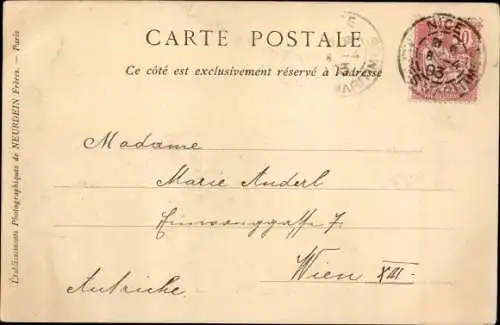 CARTE POSTALE
Ce côté est exclusivement réservé à l'adresse
NICE
10
03
Madame
Marie Anderl
Einwanggasse 7
Wien XIII
Autriche
Établissements Photographiques de NEURDEIN Frères. — Paris